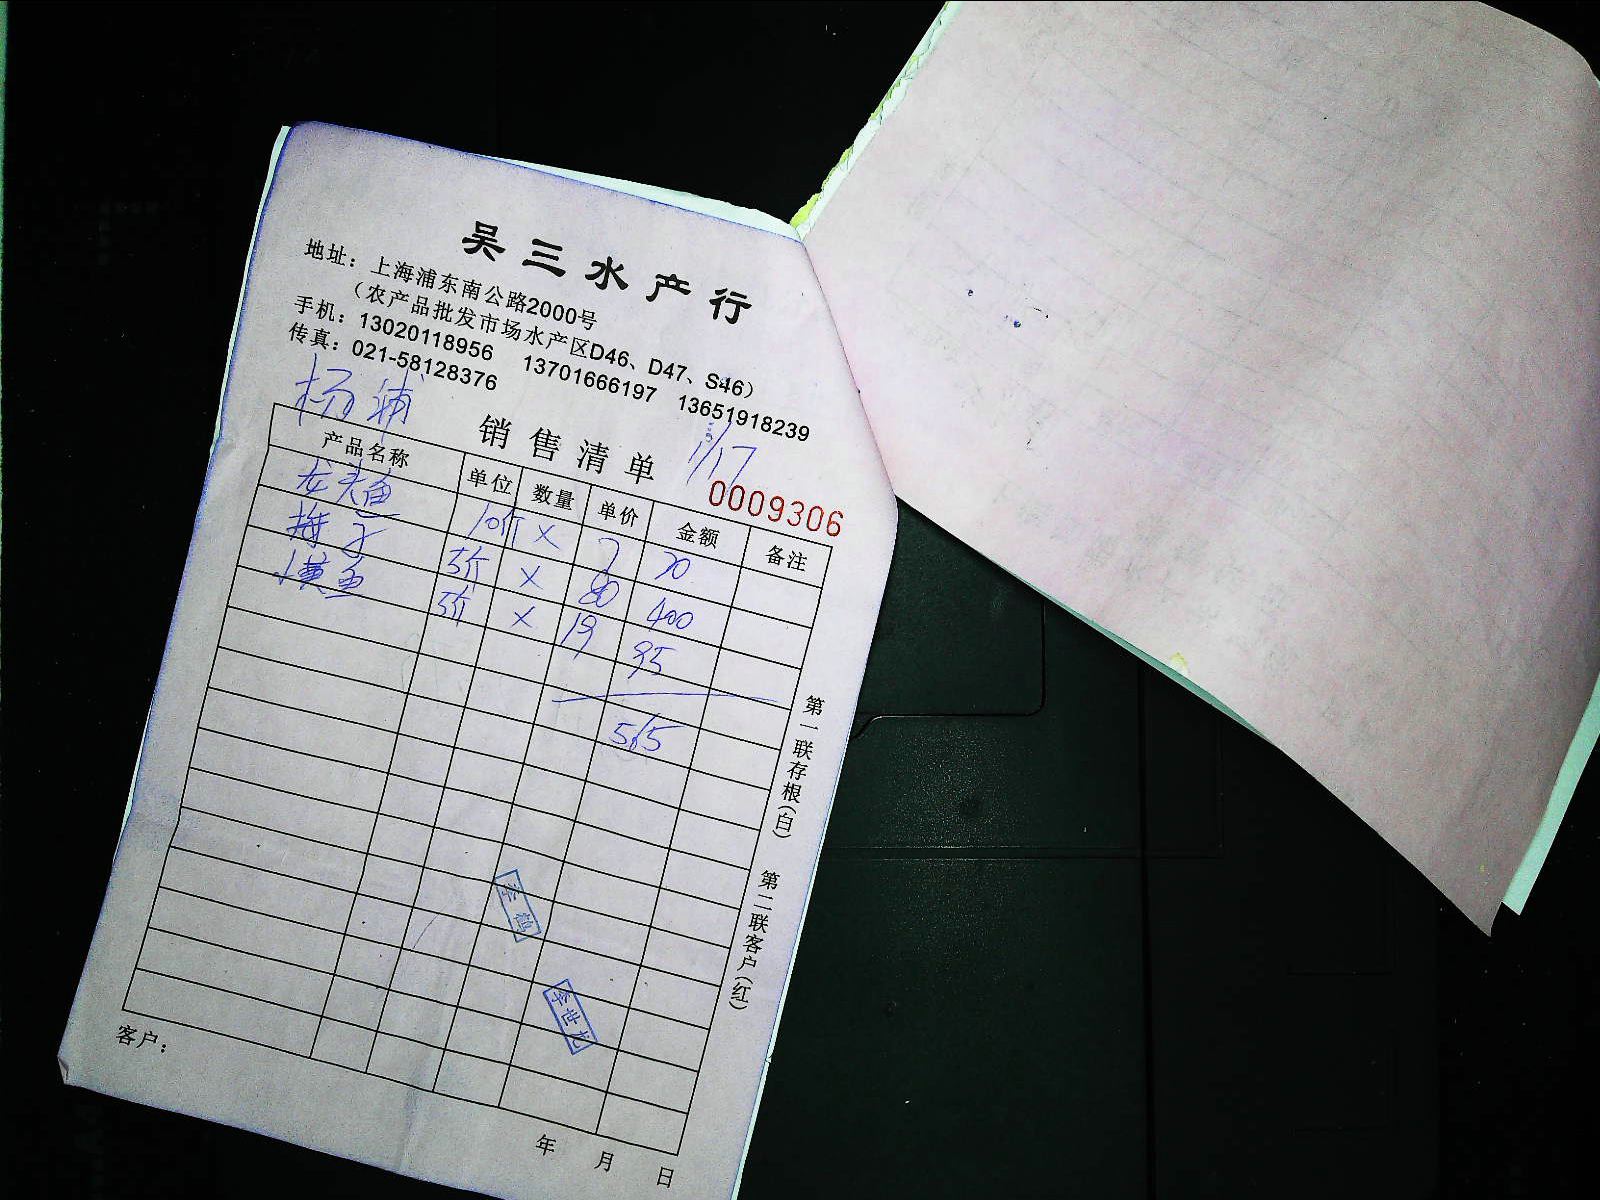 吴三水产行
地址：上海浦东南公路2000号
（农产品批发市场水产区D46、D47、S46）
手机：13020118956 13701666197 13651918239
传真：021-58128376
杨浦
销售清单 1/17
0009306
产品名称 单位 数量 单价 金额 备注
龙头鱼 10斤 × 7 70
梅子 5斤 × 80 400
小黄鱼 5斤 × 19 95
565
第一联存根(白) 第二联客户(红)
李世龙
客户：
年 月 日